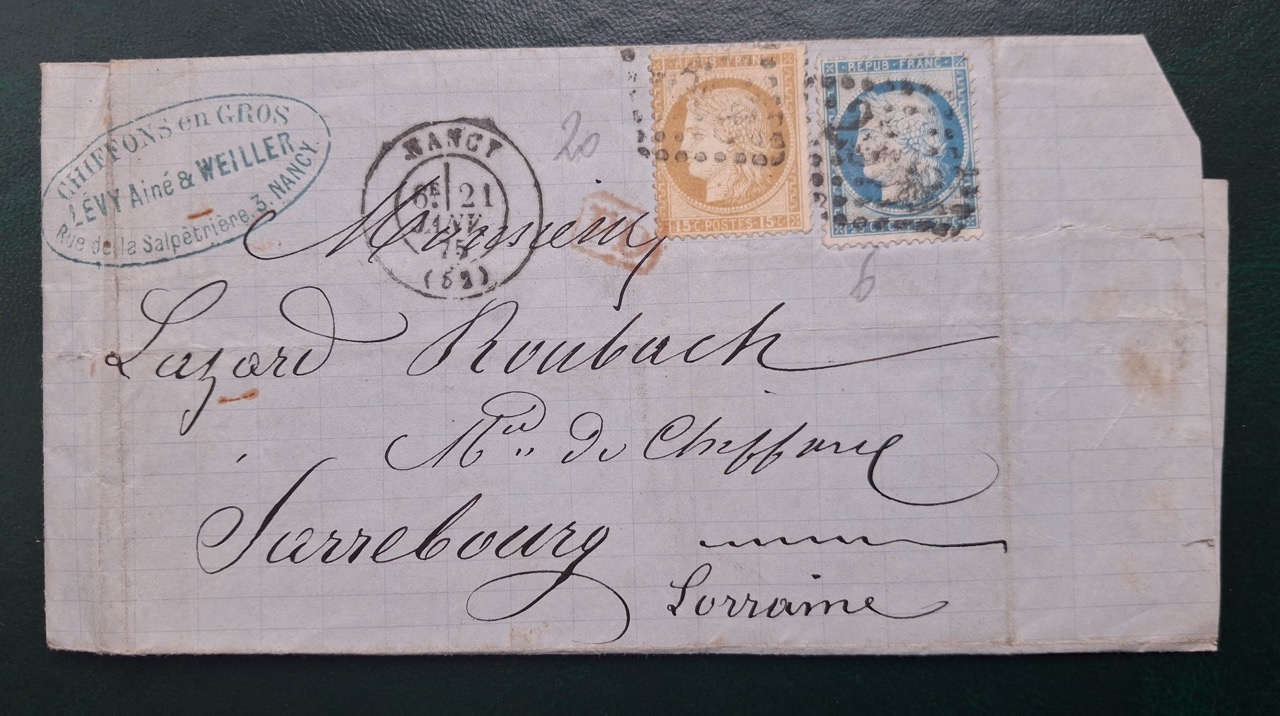 CHIFFONS en GROS
LÉVY Ainé & WEILLER
Rue de la Salpêtrière, 3, NANCY
NANCY
6E 21
JANV.
75
(52)
20
PD
15C POSTES 15C
REPUB FRANC
6
Monsieur
Lazard Roubach
Md de Chiffons
Sarrebourg
Lorraine